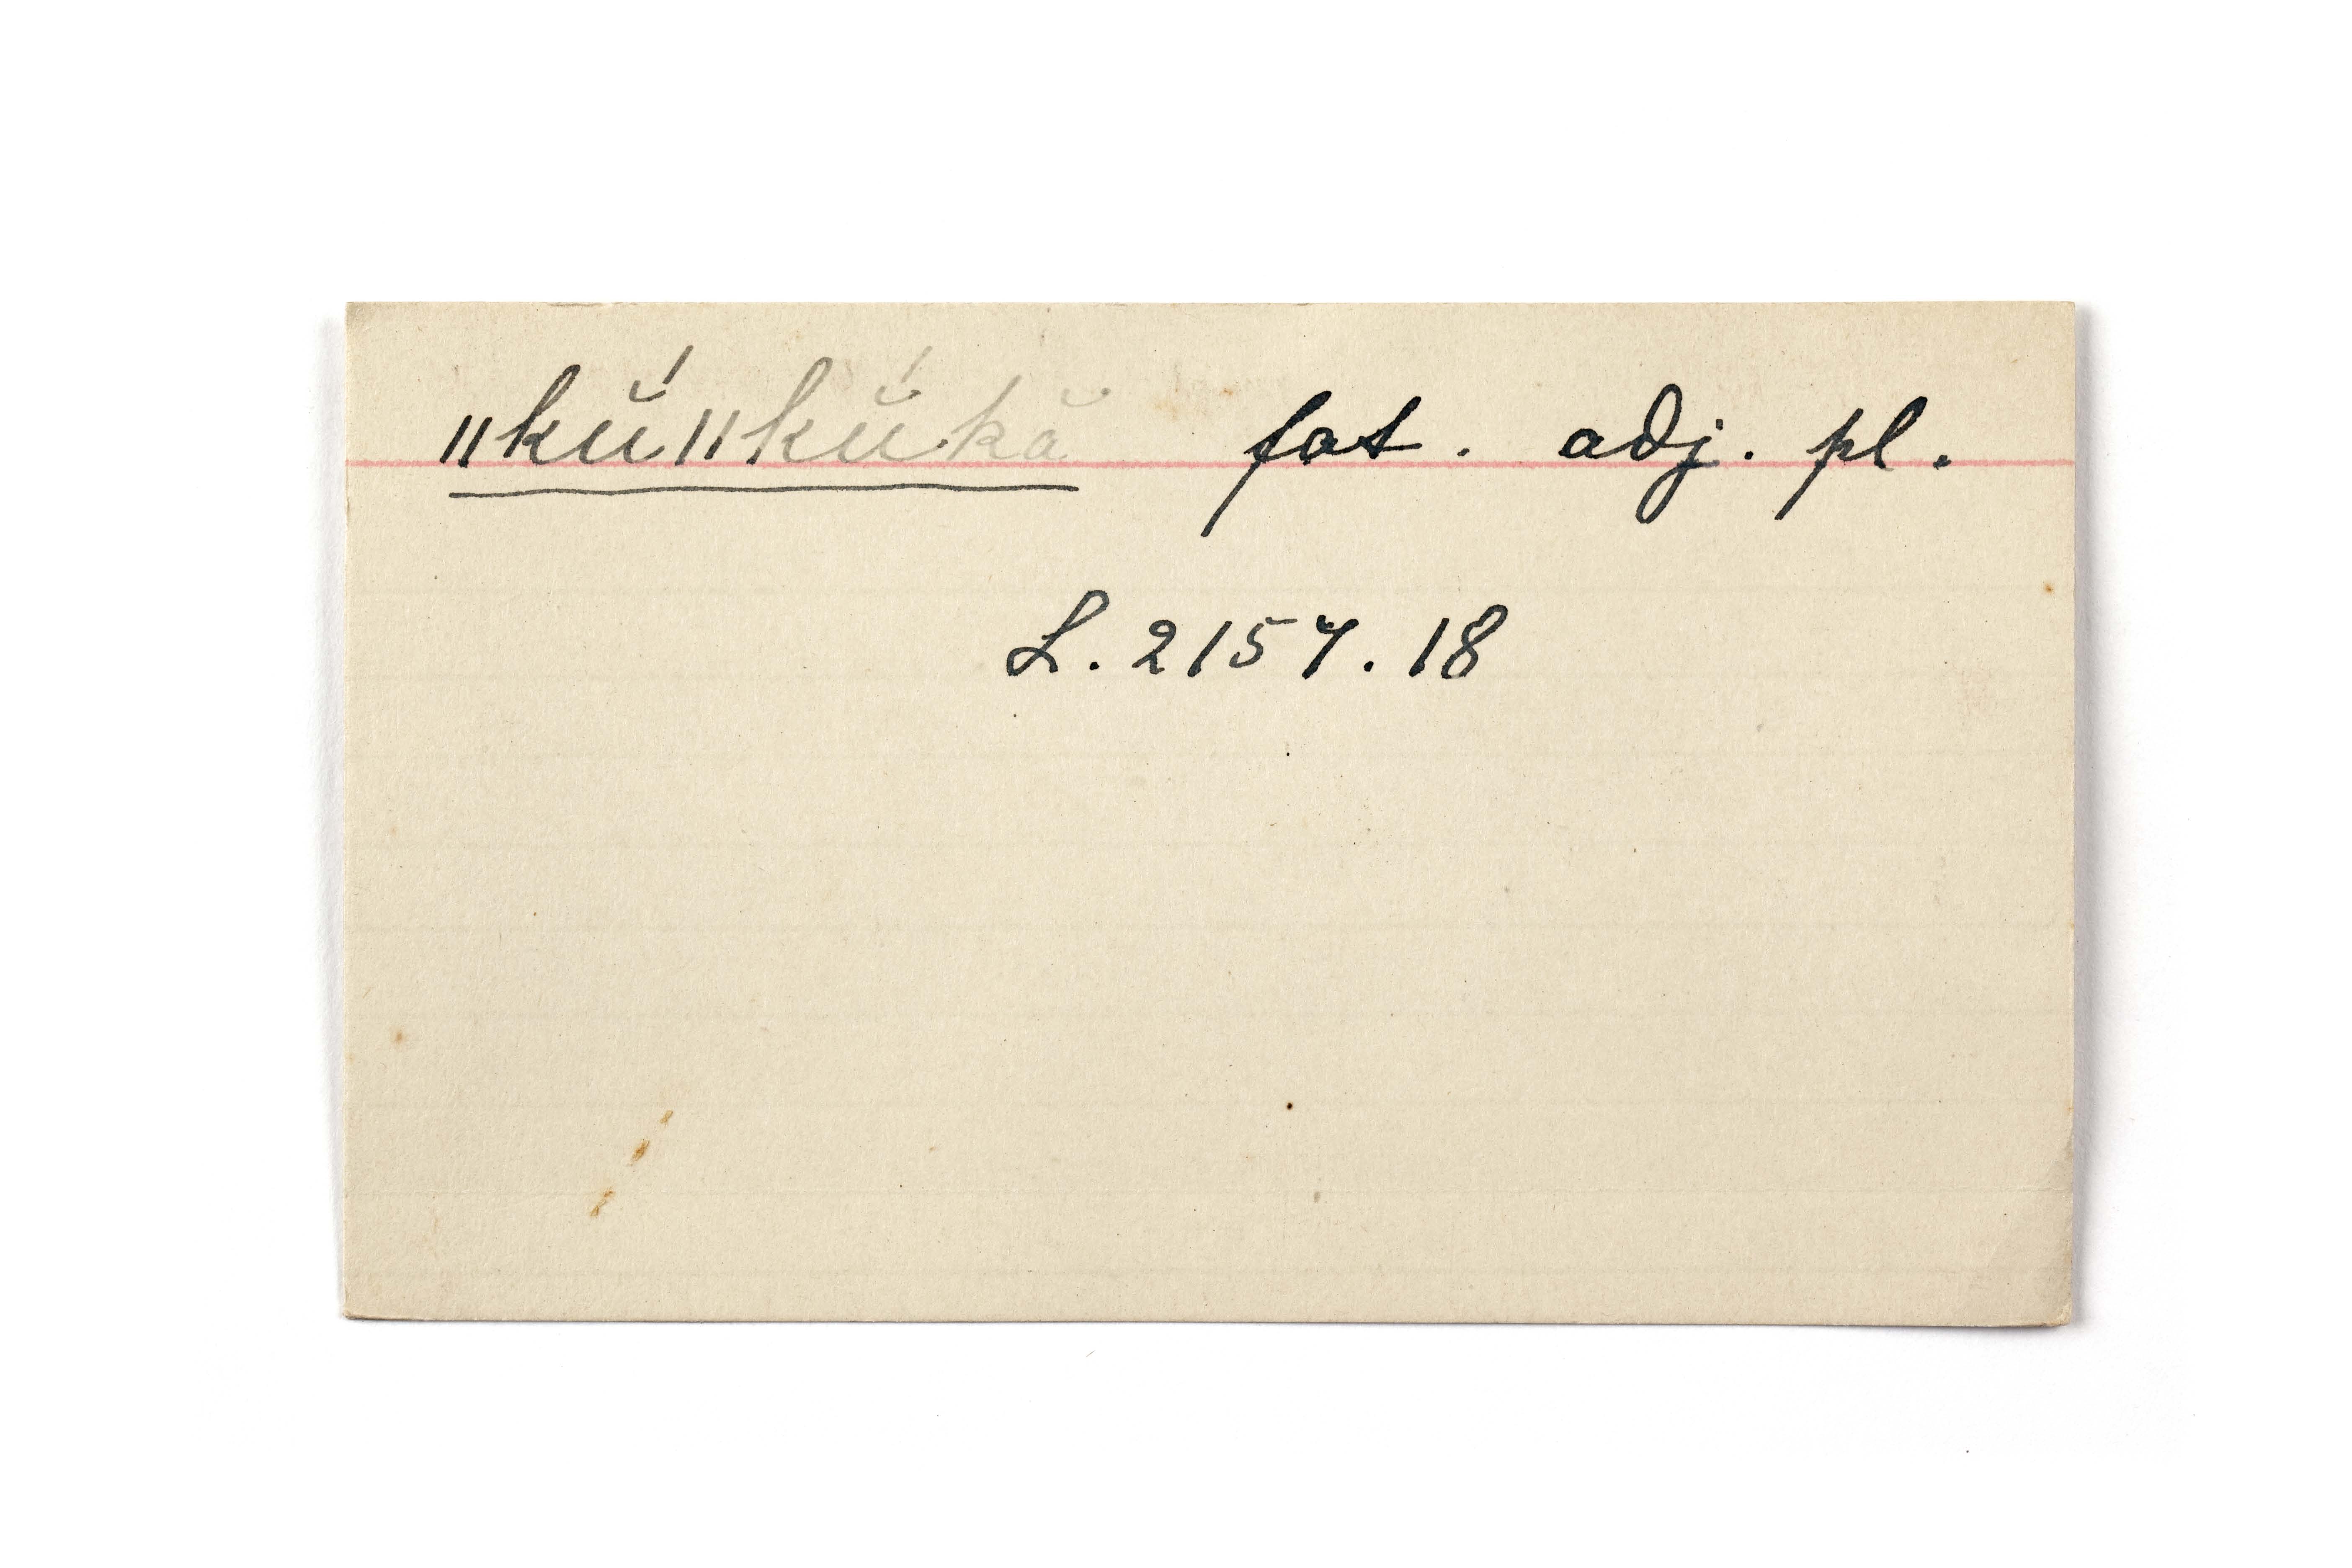 ǁkŭ́ǁkŭ́kă fat. adj. pl.
L. 2157. 18